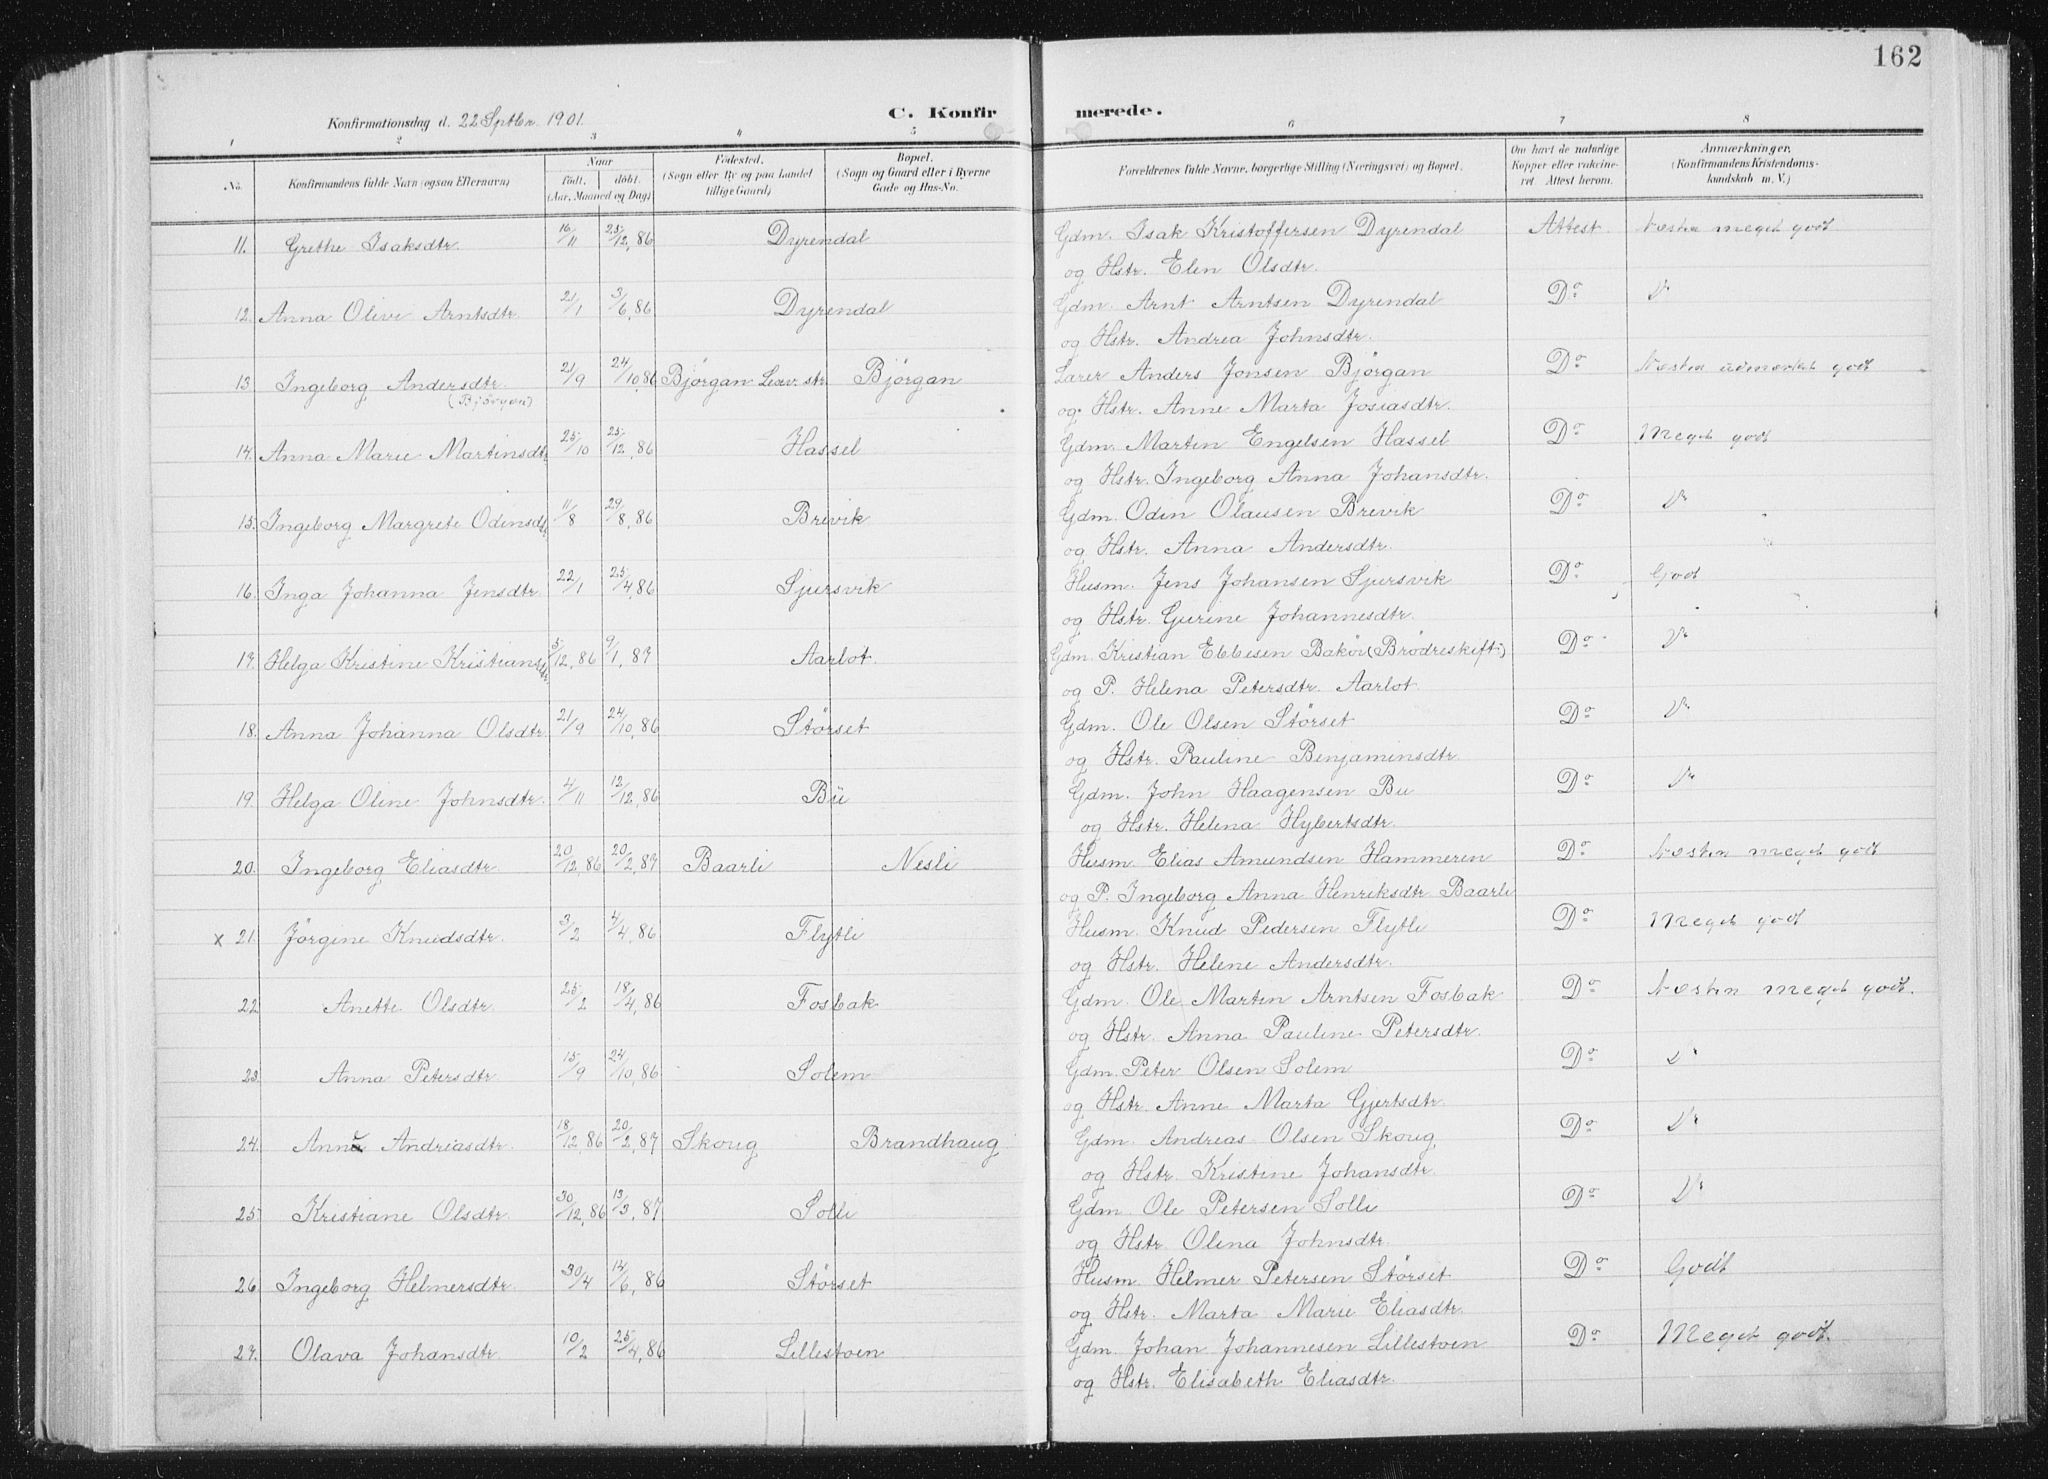 162
Konfirmationsdag d. 22 Septbr. 1901. C. Konfirmerede.
1 2 3 4 5 6 7 8
No. Konfirmandens fulde Navn (ogsaa Efternavn) Naar født, døbt. (Aar, Maaned og Dag) Fødested. (Sogn eller By og paa Landet tillige Gaard) Bopæl. (Sogn og Gaard eller i Byerne Gade og Hus-No. Forældrenes fulde Navne, borgerlige Stilling (Næringsvei) og Bopæl. Om havt de naturlige Kopper eller vaccineret. Attest herom. Anmærkninger. (Konfirmandens Kristendomskundskab m. V.)
11. Grethe Isaksdtr. 16/11 25/12, 86 Dyrendal Gdm. Isak Kristoffersen Dyrendal Attest. Næsten meget godt
og Hstr. Elen Olsdtr.
12. Anna Olive Arntsdtr. 21/1 3/6, 86 Dyrendal Gdm. Arnt Arntsen Dyrendal Do
og Hstr. Andrea Johnsdtr.
13 Ingeborg Andersdtr. 21/9 24/10, 86 Bjørgan Bjørgan Lærer Anders Jonsen Bjørgan Do Næsten udmærket godt
(Bjørgan) og Hstr. Anne Marta Josiasdtr.
14. Anna Marie Martinsdtr 25/10 25/12, 86 Hassel Gdm. Martin Engelsen Hassel Do Meget godt
og Hstr. Ingeborg Anna Johansdtr.
15. Ingeborg Margrete Odinsdtr 11/8 29/8, 86 Brevik Gdm. Odin Olausen Brevik Do
og Hstr. Anna Andersdtr.
16. Inga Johanna Jensdtr. 22/1 25/4, 86 Sjursvik Husm. Jens Johansen Sjursvik Do Godt
og Hstr. Gurine Johannesdtr.
17. Helga Kristine Kristiansdtr 5/12, 86 9/1, 87 Aarlot. Gdm. Kristian Ebbesen Bakøi (Brødreskift) Do
og P. Helena Petersdtr. Aarlot
18. Anna Johanna Olsdtr. 21/9 24/10, 86 Størset Gdm. Ole Olsen Størset Do
og Hstr. Pauline Benjaminsdtr.
19. Helga Oline Johnsdtr. 4/11 12/12, 86 Bu Gdm. John Haagensen Bu Do
og Hstr. Helena Hybertsdtr.
20. Ingeborg Eliasdtr. 20/12, 86 20/2, 87 Baarli Nesli Husm. Elias Amundsen Hammeren Do Næsten meget godt
og P. Ingeborg Anna Henriksdtr. Baarli
x 21. Jørgine Knudsdtr. 3/2 4/4, 86 Flytli Husm. Knud Pedersen Flytli Do Meget godt
og Hstr. Helene Andersdtr.
22 Anette Olsdtr. 25/2 18/4, 86 Fosbak Gdm. Ole Martin Arntsen Fosbak Do Næsten meget godt.
og Hstr. Anna Pauline Petersdtr.
23. Anna Petersdtr. 15/9 24/10, 86 Solem Gdm. Peter Olsen Solem Do
og Hstr. Anne Marta Gjertsdtr.
24. Anne Andreasdtr. 18/12, 86 20/2, 87 Skoug Brandhaug Gdm. Andreas Olsen Skoug Do
og Hstr. Kristine Johansdtr.
25. Kristiane Olsdtr. 30/12, 86 13/3, 87 Solli Gdm. Ole Petersen Solli Do
og Hstr. Olina Johnsdtr.
26. Ingeborg Helmersdtr. 30/4 14/6, 86 Størset Husm. Helmer Petersen Størset Do Godt
og Hstr. Marta Marie Eliasdtr.
27. Olava Johansdtr. 10/2 25/4, 86 Lillestoen Gdm. Johan Johannesen Lillestoen Do Meget godt.
og Hstr. Elisabeth Eliasdtr.